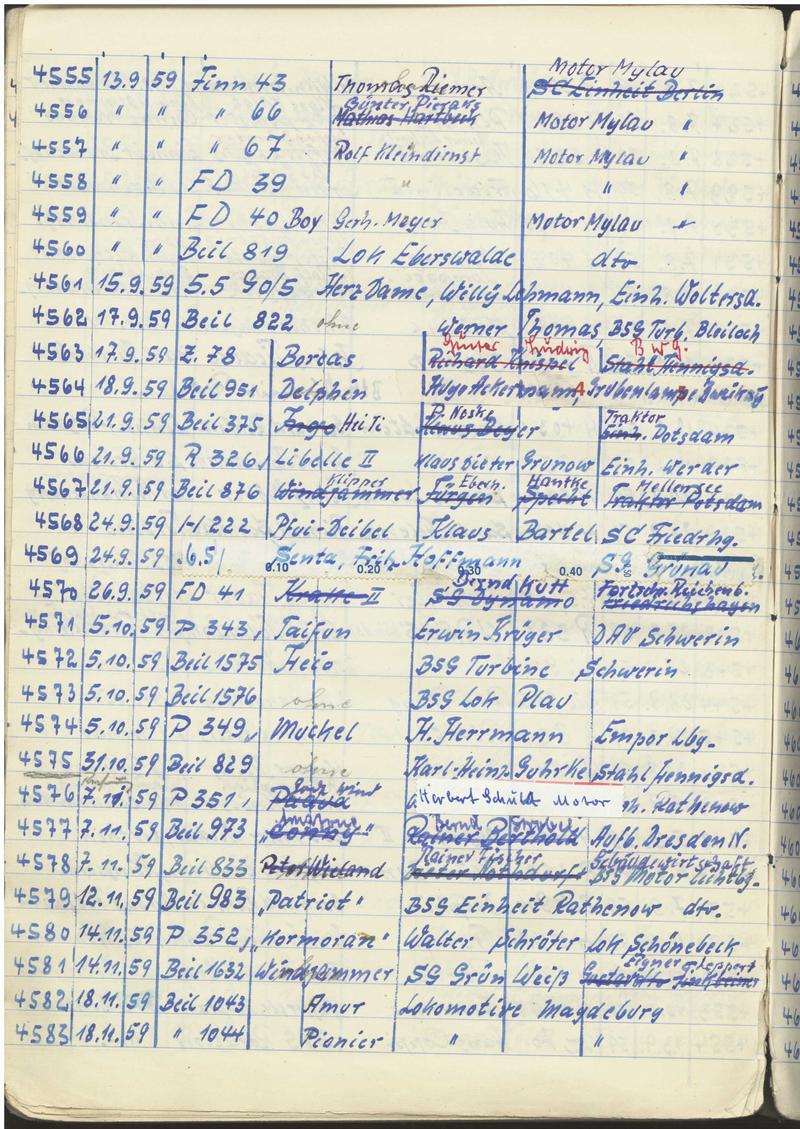 Motor Mylau
4555 13.9 59 Finn 43 Thomas Riemer SC Einheit Berlin
Günter
4556 " " " 66 Motor Mylau "
4557 " " " 67 Rolf Kleindienst Motor Mylau "
4558 " " FD 39 " "
4559 " " FD 40 Boy Gerh. Meyer Motor Mylau "
4560 " " Beil 819 Lok Eberswalde dto
4561 15.9.59 5.5 90/5 Herz Dame, Willy Lehmann, Einh. Woltersd.
4562 17.9.59 Beil 822 ohne Werner Thomas, BSG Turb. Bleiloch
Günter Ludwig B.W.G.
4563 17.9.59 Z. 78 Bordas Richard Knispel Stahl Hennigsd.
4564 18.9.59 Beil 951 Delphin Hugo Ackermann, Grubenlampe Zwickau
P. Noske Traktor
4565 21.9.59 Beil 375 Ingo Hei Ti Klaus Beyer Einh. Potsdam
4566 21.9.59 R 326, Libelle II Klaus Dieter Grunow Einh. Werder
Klipper Eberh. Hantke Mellensee
4567 21.9.59 Beil 876 Windjammer Jürgen Specht Traktor Potsdam
4568 24.9.59 H 222 Pfui-Deibel Klaus Bartel SC Friedrhg.
4569 24.9.59 .6.5/ Senta, Fritz Hoffmann S.G. Grünau
0.10 0.20 0.30 0.40
Bernd Kutt Fortschr. Reichenb.
4570 26.9.59 FD 41 Krake II SG Dynamo Friedrichshagen
4571 5.10.59 P 343, Taifun Erwin Krüger DAV Schwerin
4572 5.10.59 Beil 1575 Heio BSG Turbine Schwerin
4573 5.10.59 Beil 1576 ohne BSG Lok Plau
4574 5.10.59 P 349, Muckel H. Herrmann Empor Lbg.
4575 31.10.59 Beil 829 ohne Karl-Heinz Guhrke Stahl Hennigsd.
wind
4576 7.11.59 P 351, Herbert Schuldt Motor Rathenow
Bernd
4577 7.11.59 Beil 973 "Conny" Rainer Berthold Aufb. Dresden N.
Rainer Fischer Gebäudewirtschaft
4578 7.11.59 Beil 833 Peter Wieland BSG Motor Lichtbg.
4579 12.11.59 Beil 983 "Patriot" BSG Einheit Rathenow dto.
4580 14.11.59 P 352, "Kormoran" Walter Schröter Lok Schönebeck
Eigner
4581 14.11.59 Beil 1632 Windjammer SG Grün Weiß
4582 18.11.59 Beil 1043 Amur Lokomotive Magdeburg
4583 18.11.59 " 1044 Pionier " "